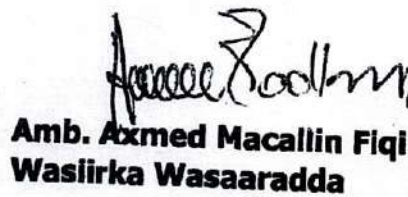 Amb. Axmed Macallin Fiqi
Wasiirka Wasaaradda